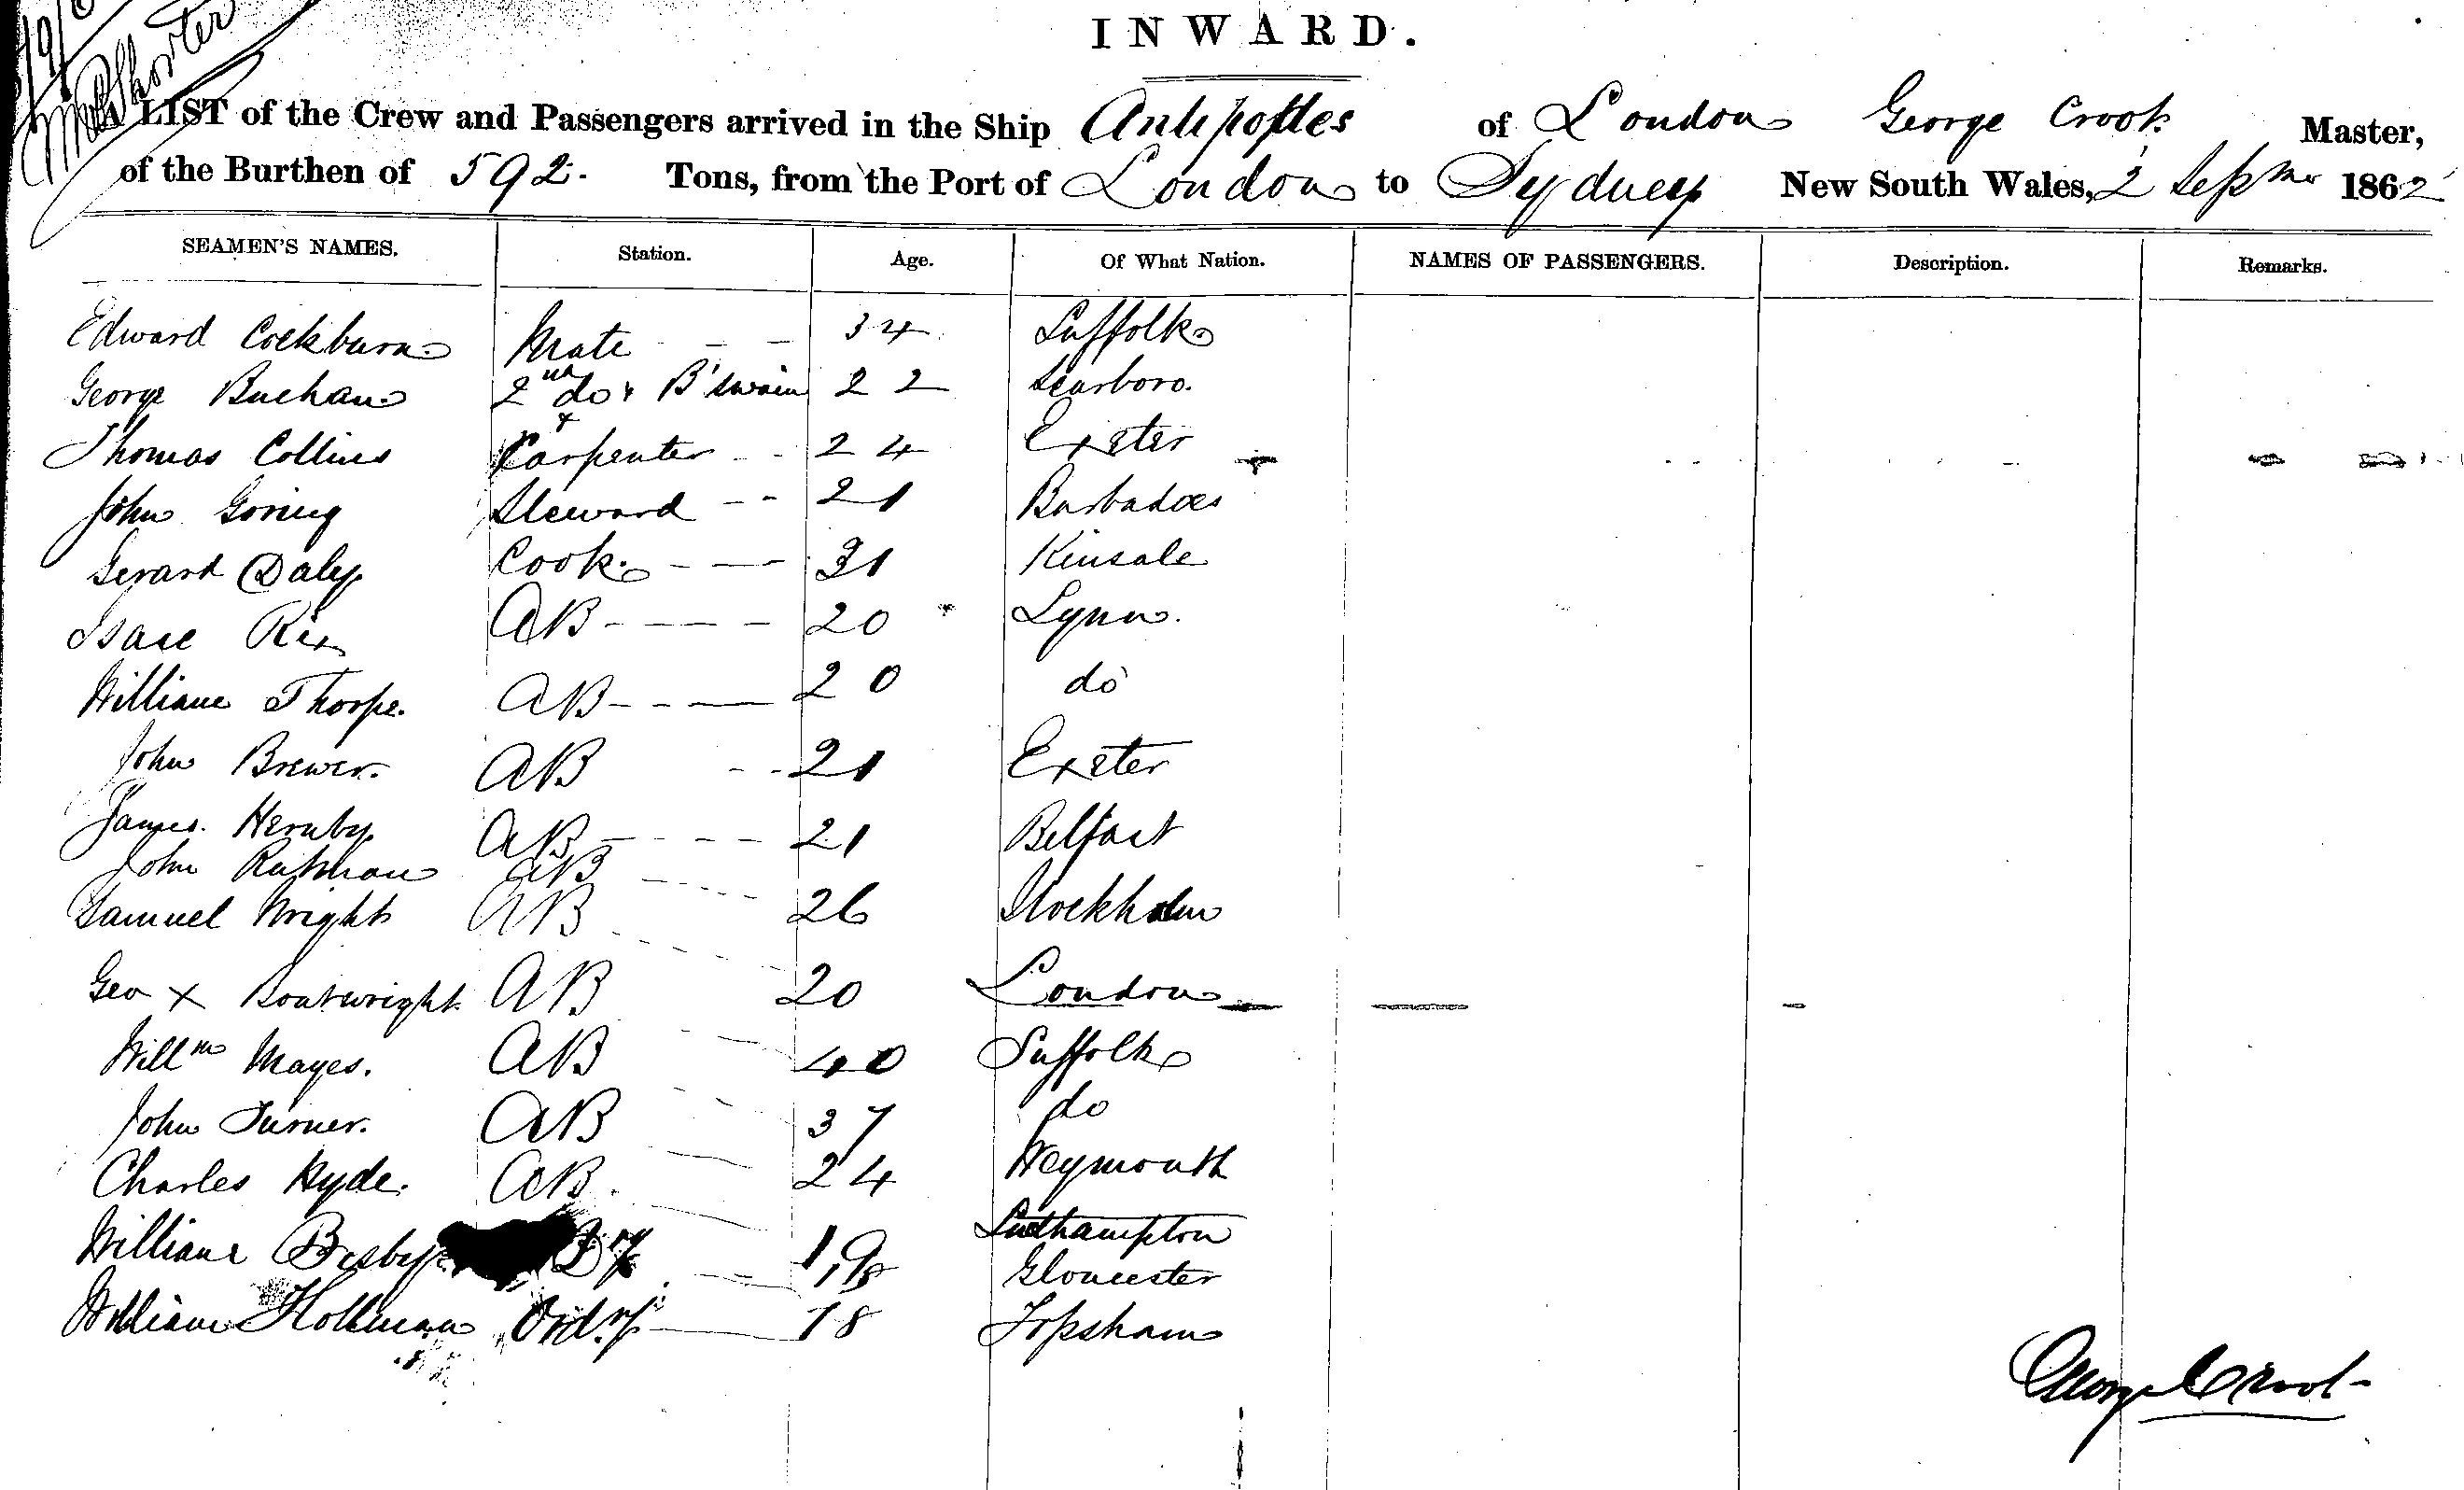 INWARD.
A LIST of the Crew and Passengers arrived in the Ship Antipodes of London George Crook Master,
of the Burthen of 592. Tons, from the Port of London to Sydney New South Wales, 2 Sepmr 1862
SEAMEN'S NAMES. Station. Age. Of What Nation. NAMES OF PASSENGERS. Description. Remarks.
Edward Cockburn Mate - - 34 Suffolk
George Buchan 2nd do & B'swain 22 Scarboro.
Thomas Collins Carpenter - - 24 Exeter
John Goring Steward - - 21 Barbadoes
Gerard Daly Cook. - - - 31 Kinsale
Isaac Rix AB - - - - 20 Lynn.
William Thorpe. AB - - - 20 do
John Brewer. AB - - 21 Exeter
James Hernby AB - - - - 21 Belfast
John AB
Samuel Wright AB 26 Stockholm
Geo x Boatwright AB 20 London
Willm Mayes. AB 40 Suffolk
John Turner. AB 37 do
Charles Hyde. AB. 24 Weymouth
William Bisby 19 Southampton
18 Gloucester
William Hollman Ord.y 18 Topsham
George Crook